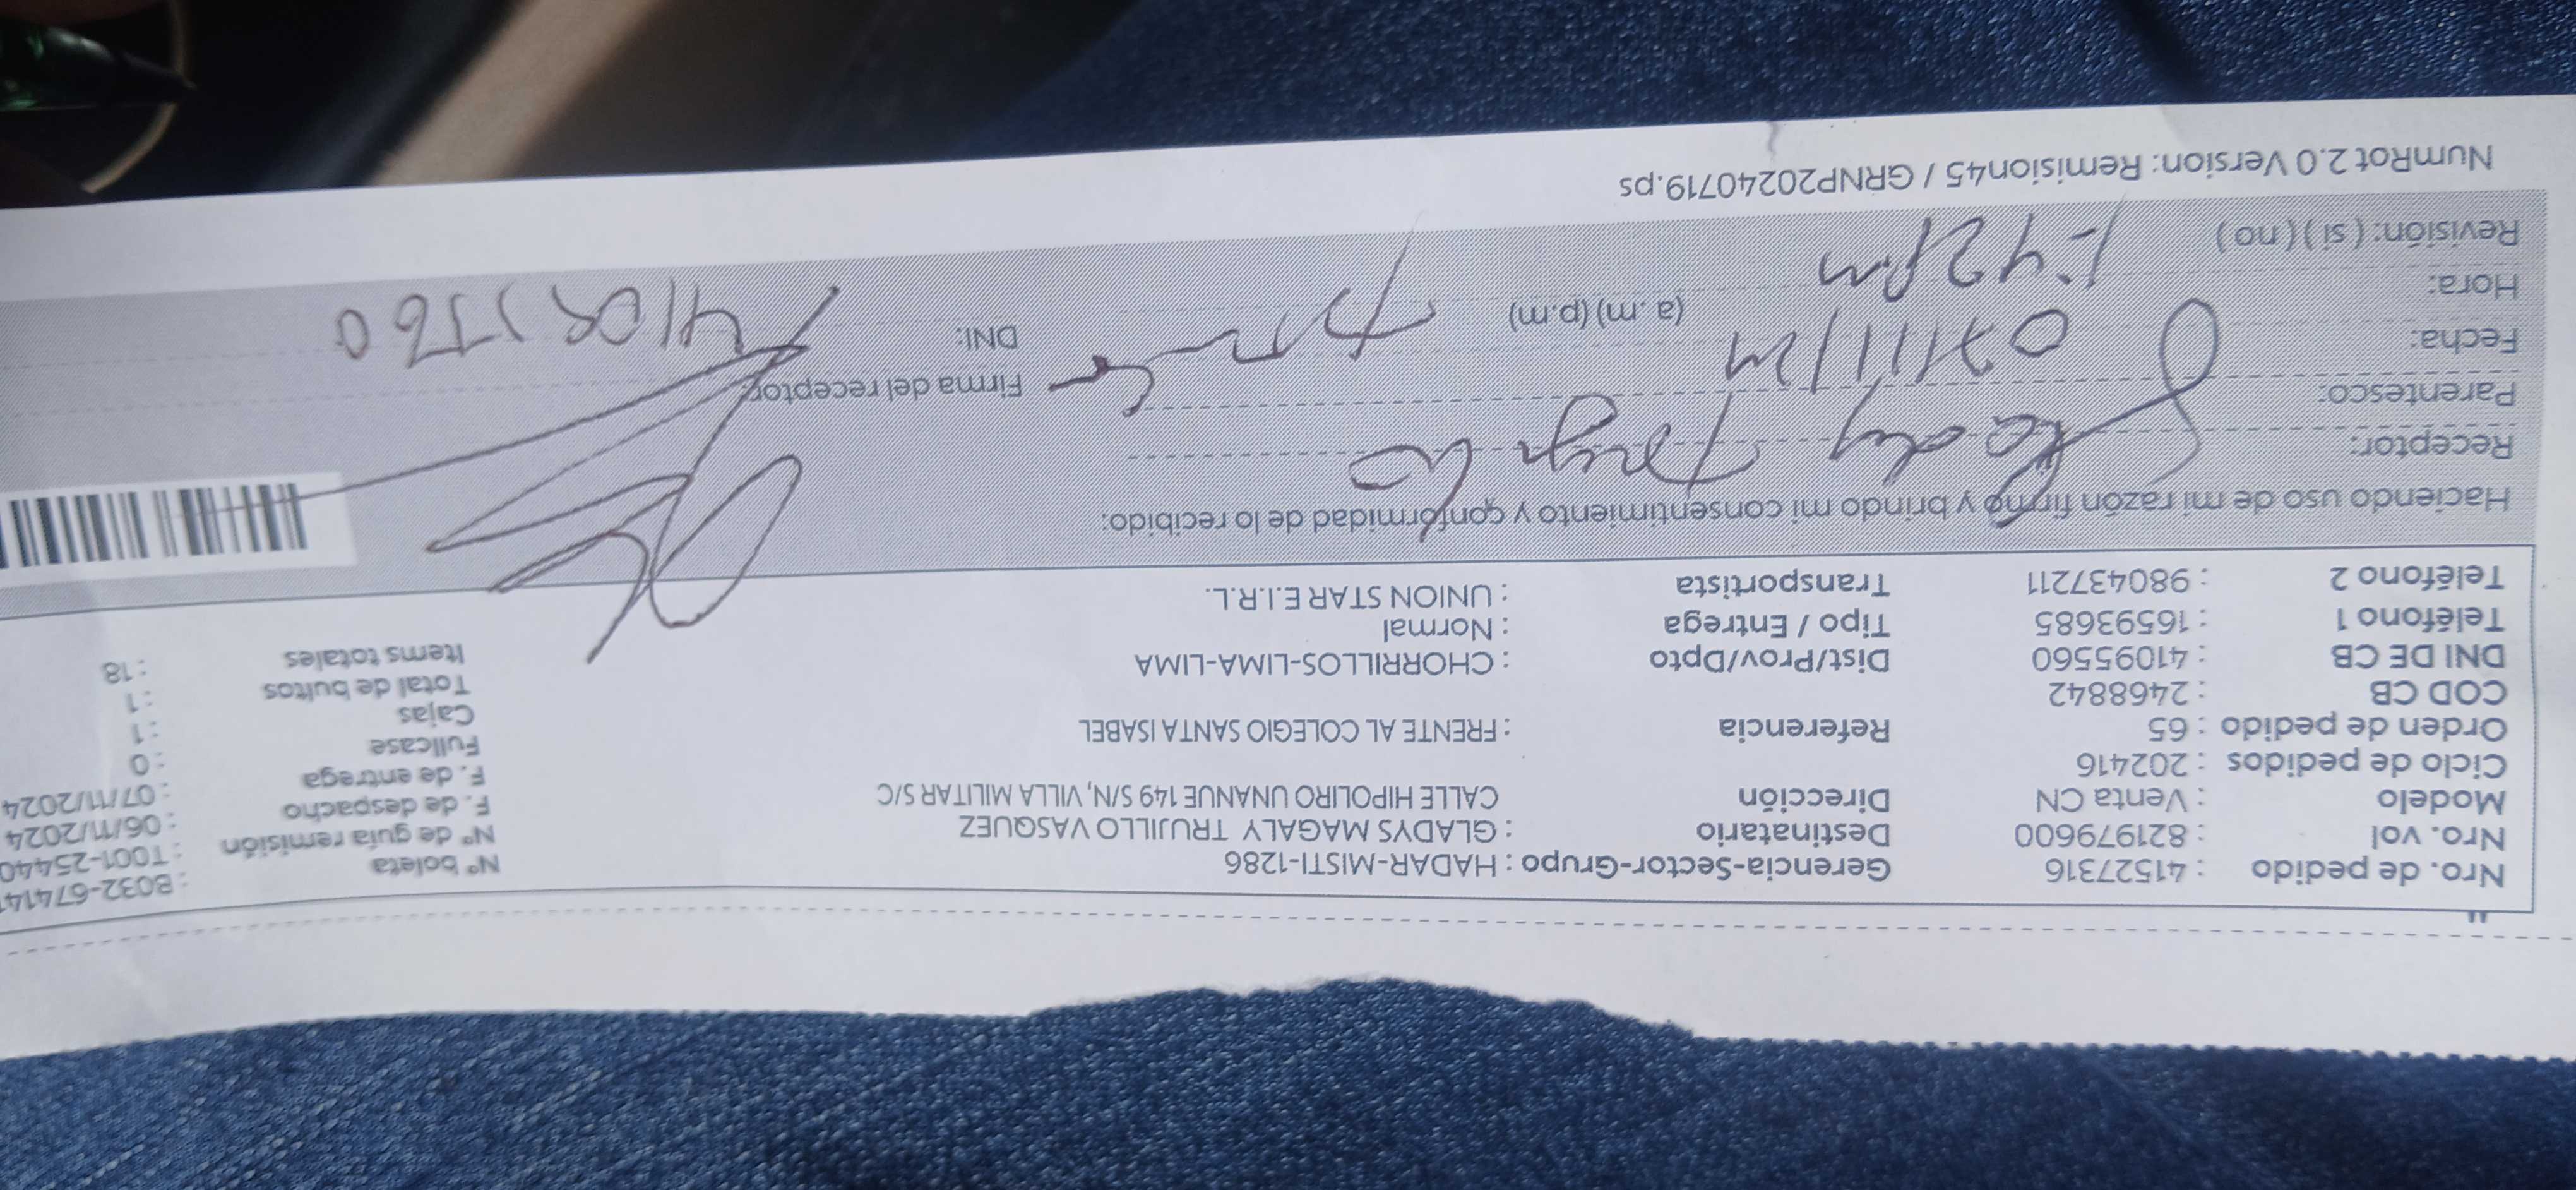 Nro. de pedido : 41527316 Gerencia-Sector-Grupo : HADAR-MISTI-1286 Nº boleta : B032-67414
Nro. vol : 821979600 Destinatario : GLADYS MAGALY TRUJILLO VASQUEZ Nº de guía remisión : T001-25440
Modelo : Venta CN Dirección CALLE HIPOLIRO UNANUE 149 S/N, VILLA MILITAR S/C F. de despacho : 06/11/2024
Ciclo de pedidos : 202416 F. de entrega : 07/11/2024
Orden de pedido : 65 Referencia : FRENTE AL COLEGIO SANTA ISABEL Fullcase : 0
COD CB : 2468842 Cajas : 1
DNI DE CB : 41095560 Dist/Prov/Dpto : CHORRILLOS-LIMA-LIMA Total de bultos : 1
Teléfono 1 : 16593685 Tipo / Entrega : Normal Items totales : 18
Teléfono 2 : 980437211 Transportista : UNION STAR E.I.R.L.
Haciendo uso de mi razón firmo y brindo mi consentimiento y conformidad de lo recibido:
Receptor:
Parentesco: Firma del receptor:
Fecha: 07/11/24 DNI:
Hora: 1:42 pm (a .m) (p.m)
Revisión: ( si ) ( no )
NumRot 2.0 Version: Remision45 / GRNP20240719.ps